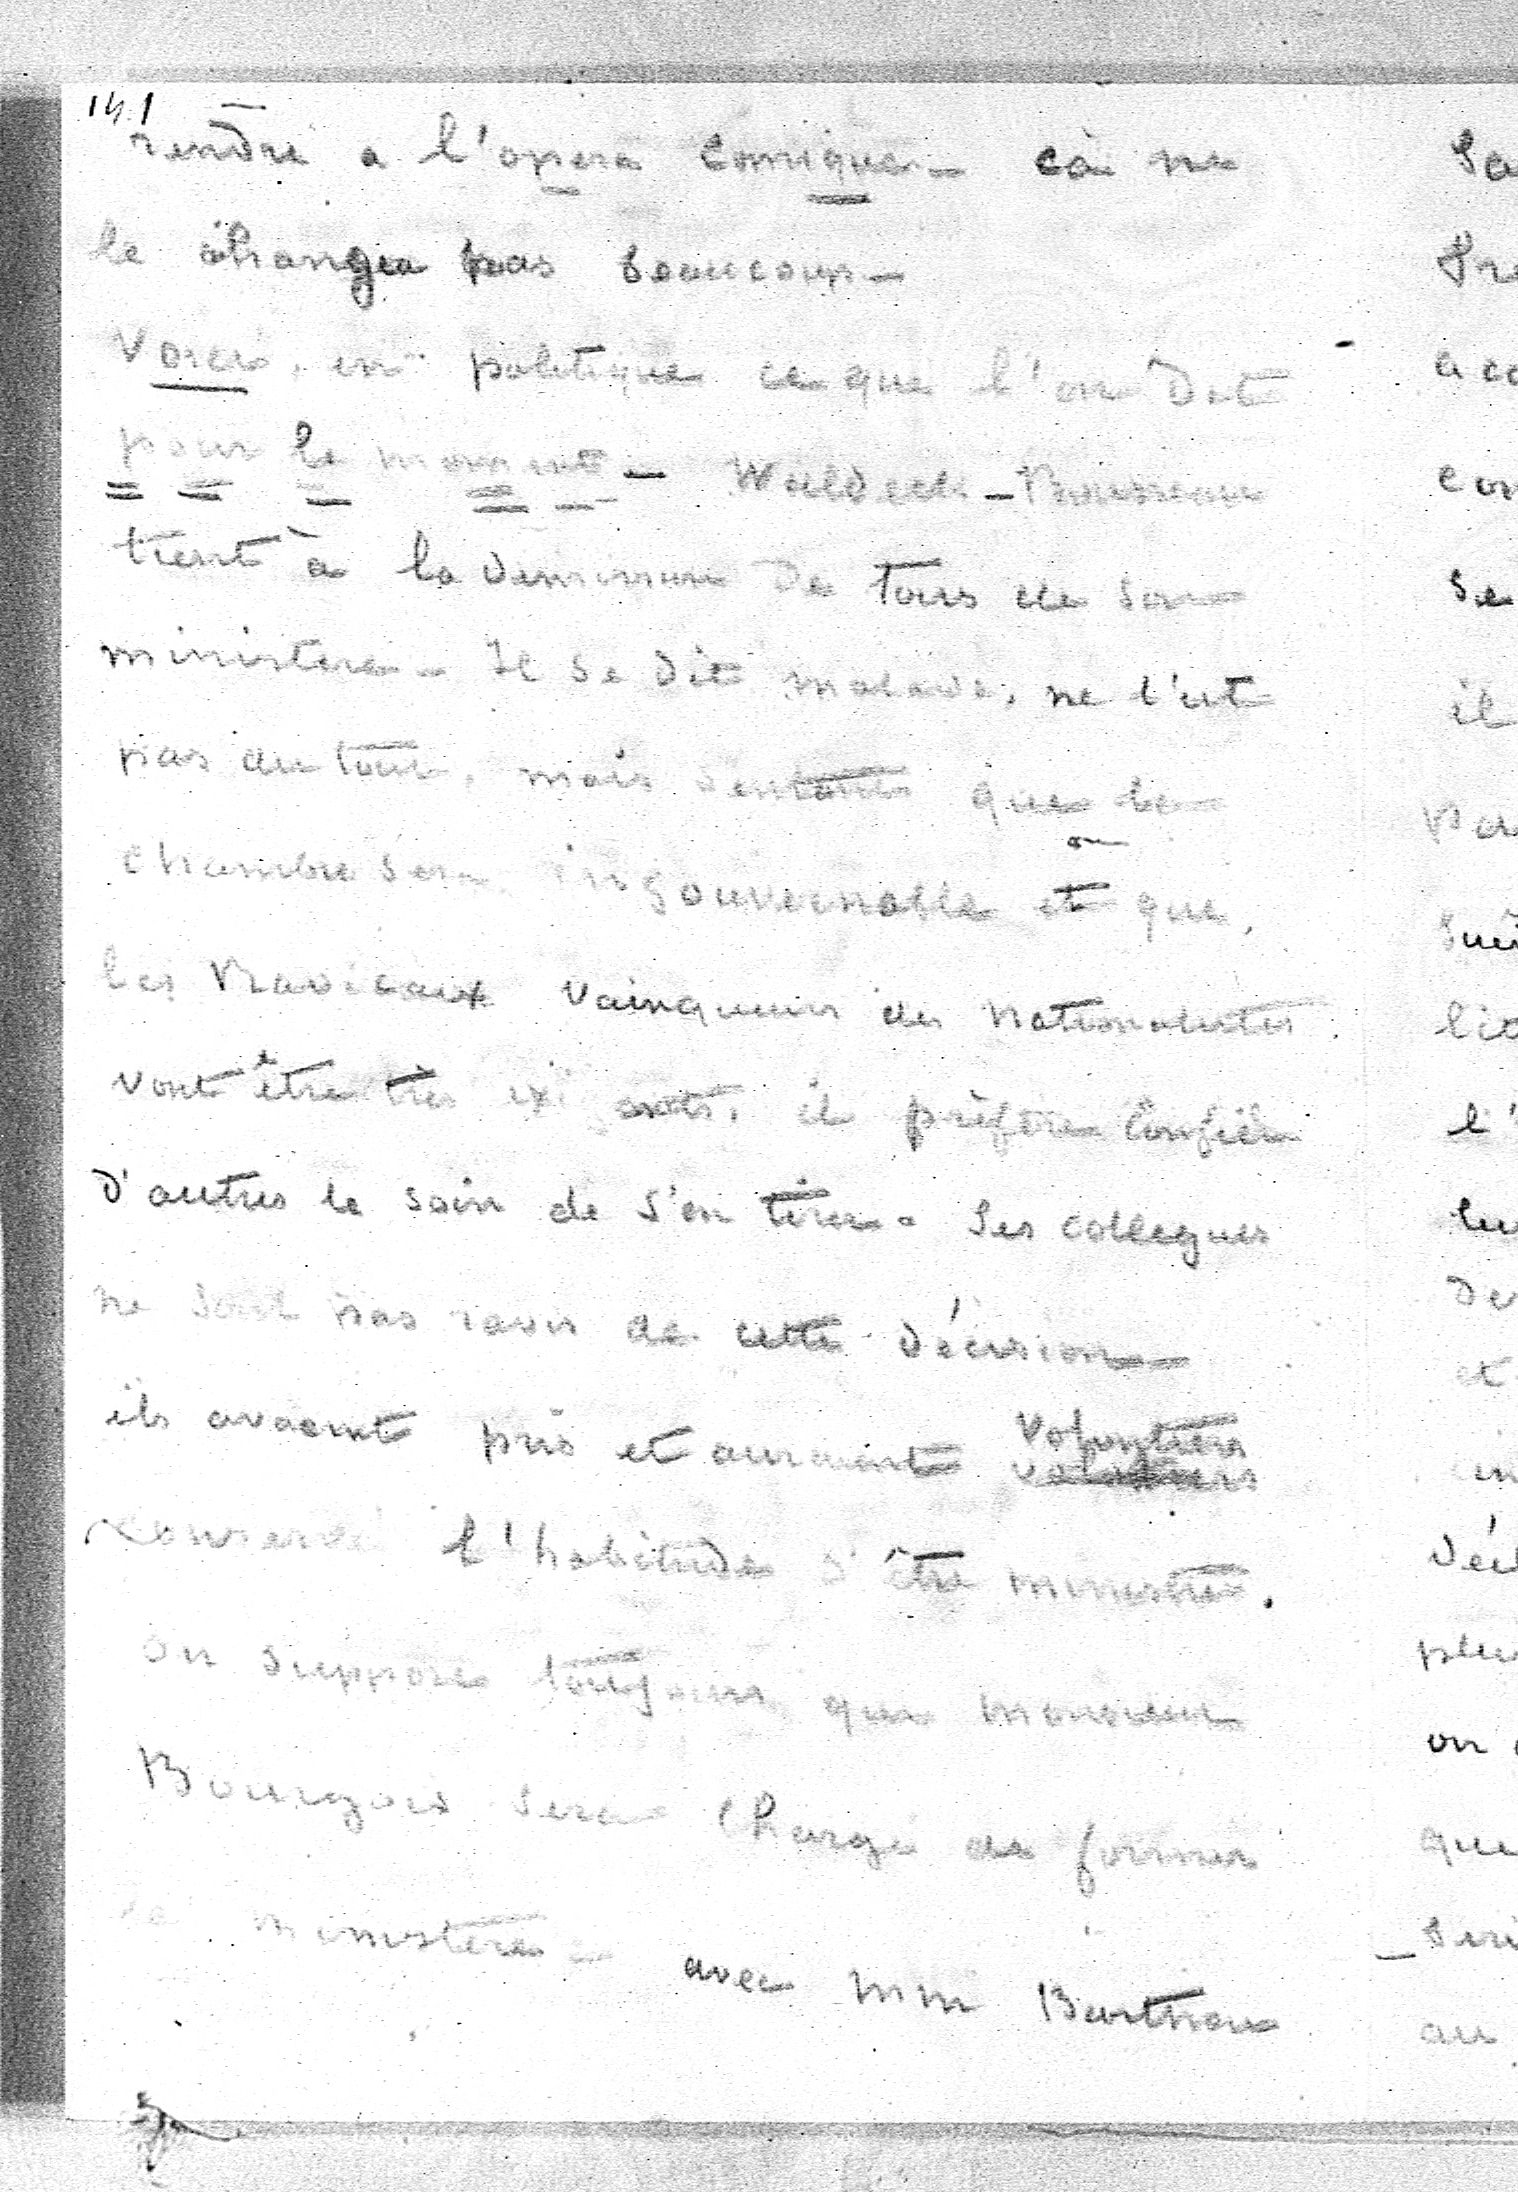 141
rendre a l'opera comique - cà ne
le changea pas beaucoup -
Voici, en politique ce que l'on Dit
pour le moment - Waldeck-Rousseau
tient à la démission De tous de son
ministere - Il se dit malade, ne l'est
pas du tout, mais sentant que la
chambre sera ingouvernable et que
les Radicaux vainqueurs des nationalistes
vont être très exigeants, il préfère confier
D'autres le soin de s'en tirer. Ses collegues
ne sont pas ravis de cette décision -
ils avaient pris et auraient volontiers
conservé l'habitude d'être ministre.
on suppose toujours que monsieur
Bourgois sera chargé de former
le ministère - avec mm Barthou
Sa
Pre
a co
con
se
il
l'
et
on
que
au